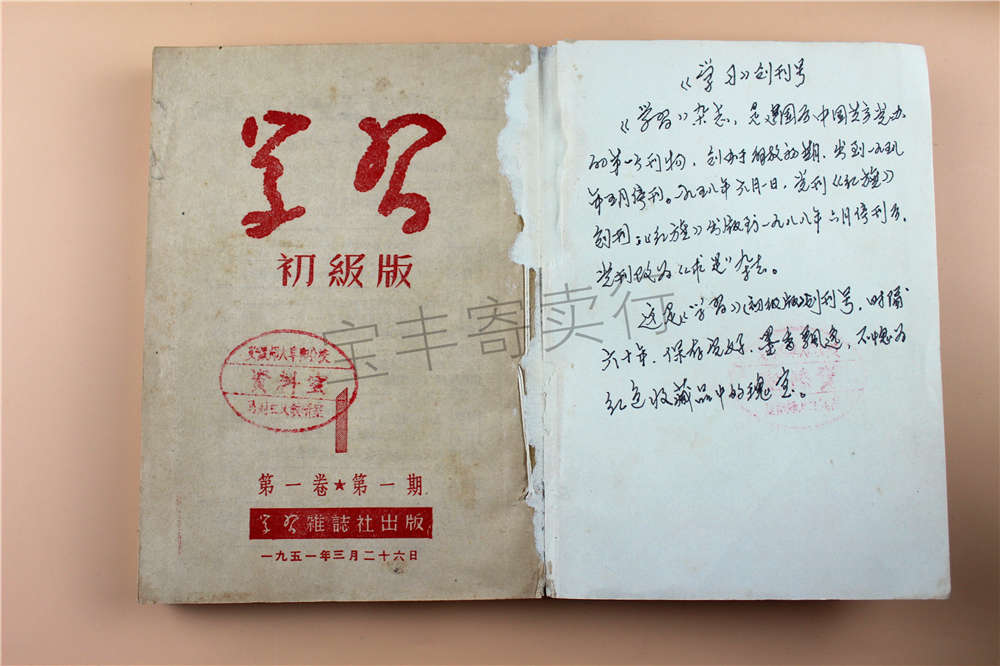 学习
初級版
资料室
1
第一卷★第一期
学习雜誌社出版
一九五一年三月二十六日
《学习》创刊号
《学習》杂志，是建国后中国共产党办
的第一份刊物，创办于解放初期，出到一九五八
年五月停刊。一九五八年六月一日，党刊《红旗》
创刊，《红旗》出版到一九八八年六月停刊后，
党刊改为《求是》杂志。
这是《学習》（初级版）创刊号，时隔
六十年，保存完好，墨香飘逸，不愧为
红色收藏品中的瑰宝。
宝丰寄卖行